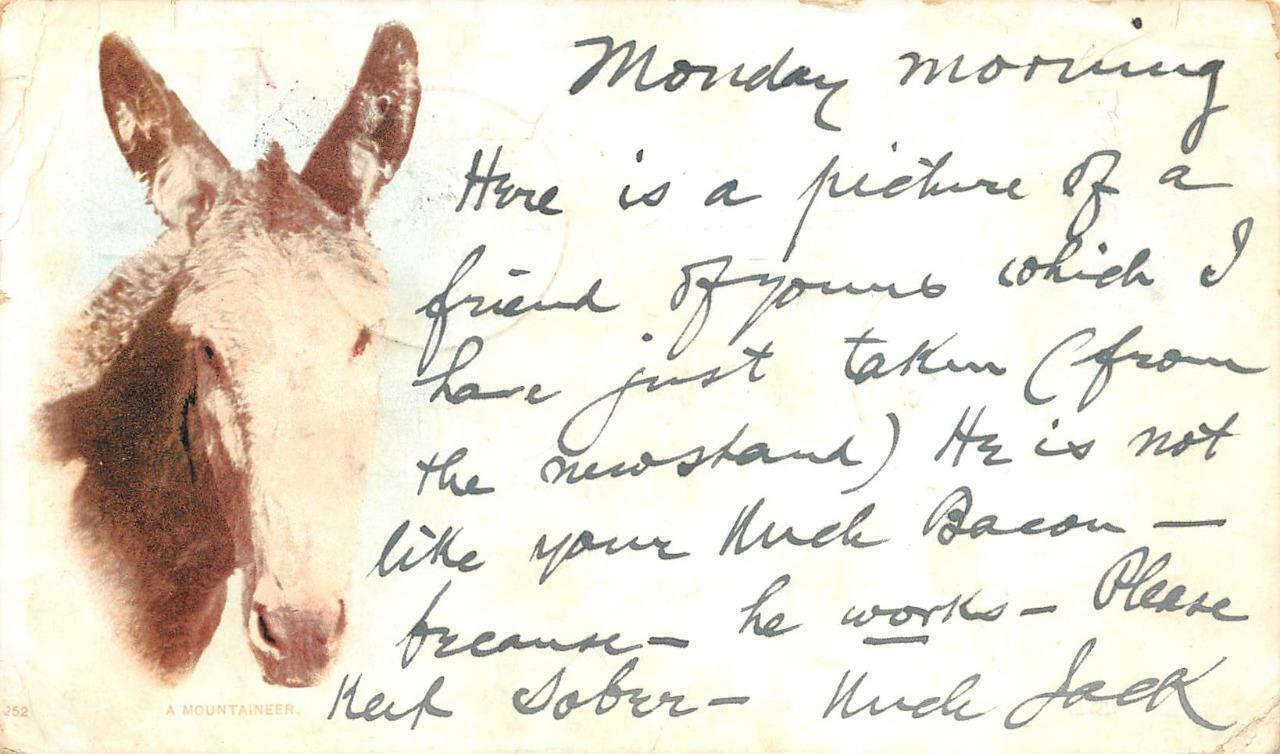 Monday morning
Here is a picture of a
friend of yours which I
have just taken (from
the newsstand) He is not
like your Uncle Bacon —
because — he works — Please
Keep Sober — Uncle Jack
252
A MOUNTAINEER.